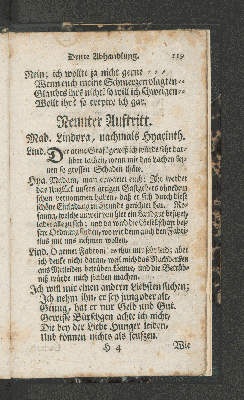 Dritte Abhandlung. 119
Nein; ich wollte ja nicht gerne - - -
Wenn euch meine Schmerzen plagten -
Glaubts ihrs nicht? so will ich schweigen -
Wollt ihrs? so crepire ich gar.
Neunter Auftritt.
Mad. Lindora, nachmals Hyacinth.
Lind. Der arme Graf! gewiß ich würde sehr dar-
über lachen, wenn mir das Lachen sei-
nen so grossen Schaden thäte.
Hya. Madam, man erwartet euch; Ihr werdet
das Unglück unsers artigen Gastgebers ohnedem
schon vernommen haben, daß er sich durch diese
schöne Einladung zu Grunde gerichtet hat.
sauna, welche unweit von hier ein Landgut besitzt,
ladet alle zu sich; und da wird die Gesellschaft bes-
sere Ordnung finden, wo wir denn auch den Fabri-
tius mit uns nehmen wollen.
Lind. O armer Fabritz, es thut mir für leid; aber
ich denke nicht daran, weil mich das Nachdenken
aus Mitleiden betrüben könnte, und die Betrüb-
niß würde mich sterben machen.
Ich will mir einen andern Liebsten suchen;
Ich nehm ihn, er sey jung oder alt,
Genug, hat er nur Geld und Gut.
Gewisse Bürschgen achte ich nicht,
Die bey der Liebe Hunger leiden,
Und können nichts als seufzen.
H 4 Wie